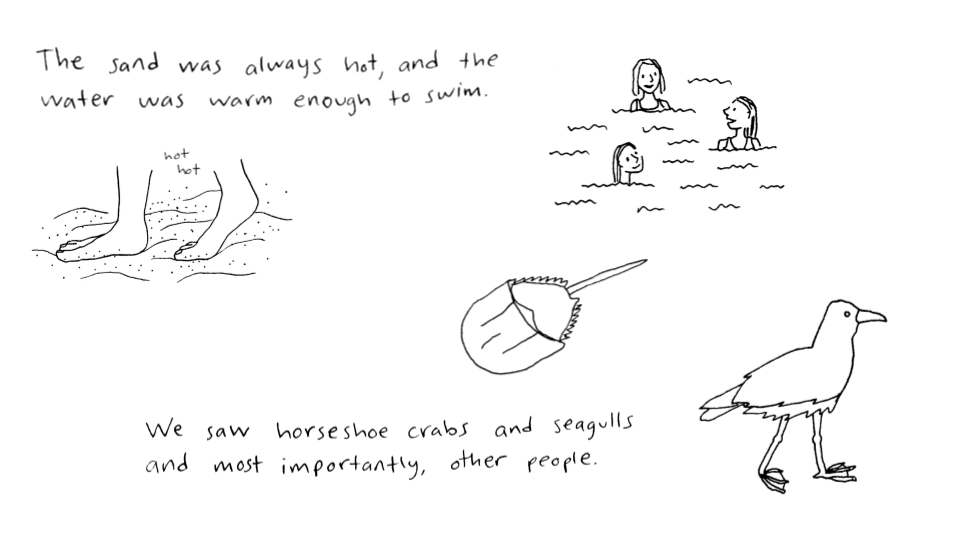 The sand was always hot, and the
water was warm enough to swim.
hot
hot
We saw horseshoe crabs and seagulls
and most importantly, other people.